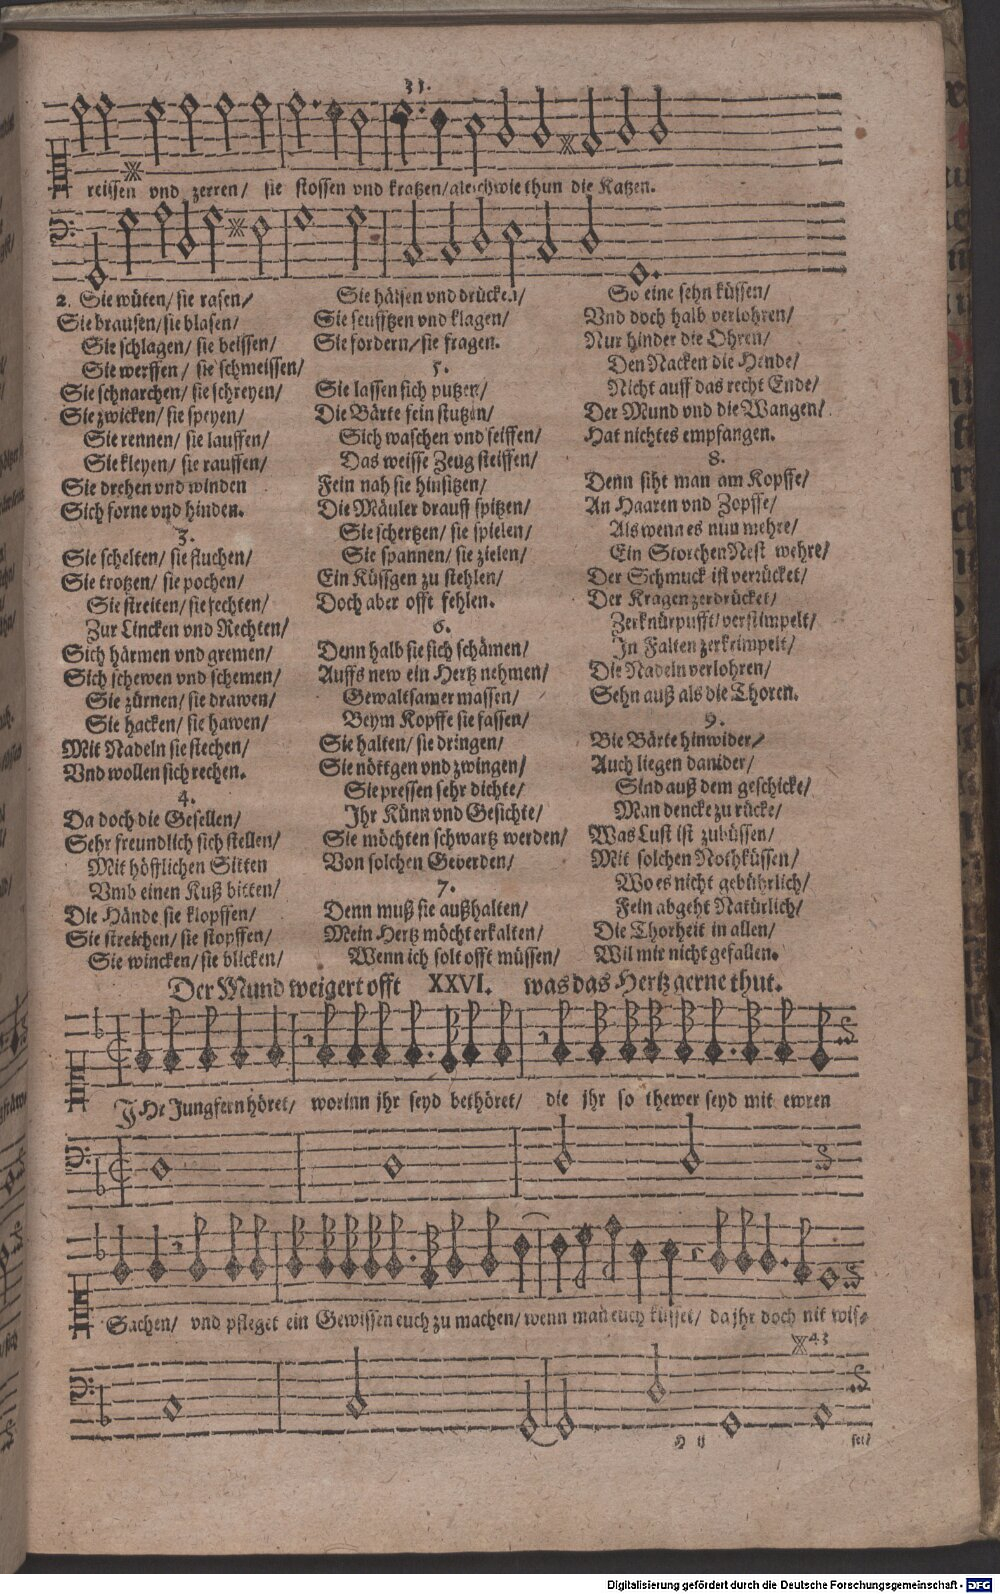 31.
reissen vnd zerren/ sie stossen vnd kratzen/ gleichwie thun die Katzen.
2. Sie wüten/ sie rasen/
Sie brausen/ sie blasen/
Sie schlagen/ sie beissen/
Sie werffen/ sie schmeissen/
Sie schnarchen/ sie schreyen/
Sie zwicken/ sie speyen/
Sie rennen/ sie lauffen/
Sie kleyen/ sie rauffen/
Sie drehen vnd winden
Sich forne vnd hinden.
3.
Sie schelten/ sie fluchen/
Sie trotzen/ sie pochen/
Sie streiten/ sie fechten/
Zur Lincken vnd Rechten/
Sich härmen vnd gremen/
Sich schewen vnd schemen/
Sie zürnen/ sie drawen/
Sie hacken/ sie hawen/
Mit Nadeln sie stechen/
Vnd wollen sich rechen.
4.
Da doch die Gesellen/
Sehr freundlich sich stellen/
Mit höfflichen Sitten
Vmb einen Kuß bitten/
Die Hände sie klopffen/
Sie streichen/ sie stopffen/
Sie wincken/ sie blicken/
Sie hälsen vnd drücken/
Sie seufftzen vnd klagen/
Sie fordern/ sie fragen.
5.
Sie lassen sich putzen/
Die Bärte fein stutzen/
Sich waschen vnd seiffen/
Das weisse Zeug steiffen/
Fein nah sie hinsitzen/
Die Mäuler drauff spitzen/
Sie schertzen/ sie spielen/
Sie spannen/ sie zielen/
Ein Küssgen zu stehlen/
Doch aber offt fehlen.
6.
Denn halb sie sich schämen/
Auffs new ein Hertz nehmen/
Gewaltsamer massen/
Beym Kopffe sie fassen/
Sie halten/ sie dringen/
Sie nöttgen vnd zwingen/
Sie pressen sehr dichte/
Ihr Künn vnd Gesichte/
Sie möchten schwartz werden/
Von solchen Geberden/
7.
Denn muß sie außhalten/
Mein Hertz möcht erkalten/
Wenn ich solt offt müssen/
So eine sehn küssen/
Vnd doch halb verlohren/
Nur hinder die Ohren/
Den Nacken die Hende/
Nicht auff das recht Ende/
Der Mund vnd die Wangen/
Hat nichtes empfangen.
8.
Denn siht man am Kopffe/
An Haaren vnd Zopffe/
Als wenn es nun mehre/
Ein Storchen Nest wehre/
Der Schmuck ist verrücket/
Der Kragen zerdrücket/
Zerknürpufft/ verstimpelt/
In Falten zerkrimpelt/
Die Nadeln verlohren/
Sehn auß als die Thoren.
9.
Die Bärte hinwider/
Auch liegen danider/
Sind auß dem geschicke/
Man dencke zu rücke/
Was Lust ist zubüssen/
Mit solchen Nothküssen/
Wo es nicht gebührlich/
Fein abgeht Natürlich/
Die Thorheit in allen/
Wil mir nicht gefallen.
Der Mund weigert offt XXVI. was das Hertz gerne thut.
IHr Jungfern höret/ worinn jhr seyd bethöret/ die jhr so thewer seyd mit ewren
Sachen/ vnd pfleget ein Gewissen euch zu machen/ wenn man euch küsset/ da jhr doch nit wis-
43
H ij
set/
Digitalisierung gefördert durch die Deutsche Forschungsgemeinschaft - DFG